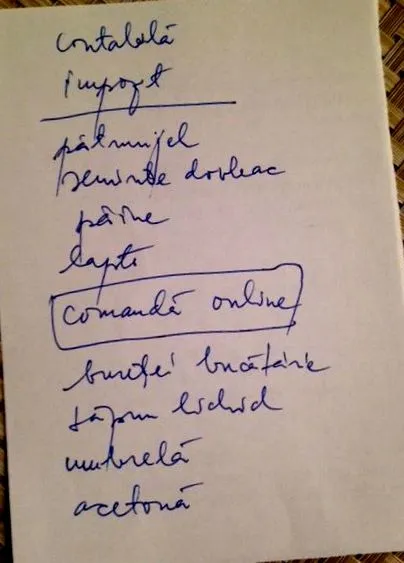 contabilă
impozit
pătrunjel
semințe dovleac
pâine
lapte
comandă online
bureței bucătărie
săpun lichid
umbrelă
acetonă